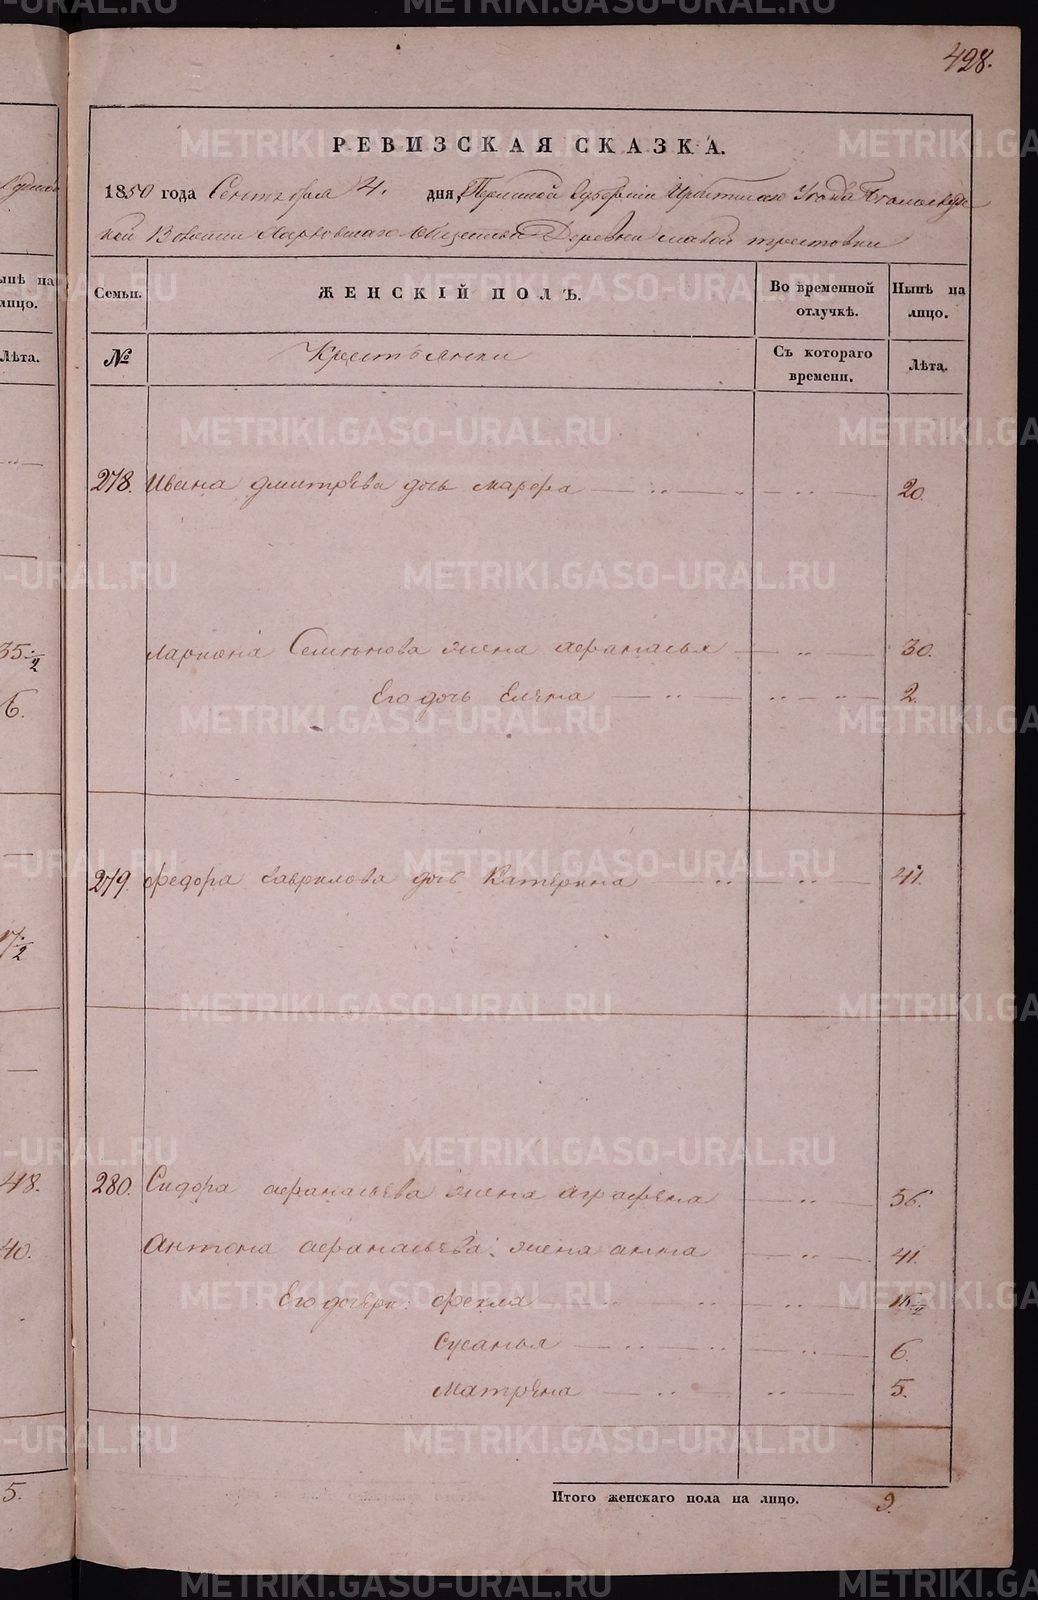 428.
РЕВИЗСКАЯ СКАЗКА.
1850 года Сентября 4. дня, Пермской Губернiи Ирбитскаго Уезда
кой Волости Харловскаго Общества Деревни малой трестовки
Семьи. ЖЕНСКІЙ ПОЛЪ. Во временной отлучкѣ. Нынѣ на лицо.
№ Крестьянски Съ котораго времени. Лѣта.
278. Ивана дмитрѣва дочь марфа 20.
Лариона Семенова жена афанасья 30.
Его дочь Елена 2.
279. Федора гаврилова дочь Катерина 41.
280. Сидора афанасьева жена аграфена 56.
Антона афанасьева: жена анна 41.
Его дочери: Фекла
Сусанья 6.
Матрена 5.
Итого женскаго пола на лицо. 9.
ынѣ на
лицо.
Лѣта.
35 1/2
6.
17 1/2
48.
40.
5.
METRIKI.GASO-URAL.RU